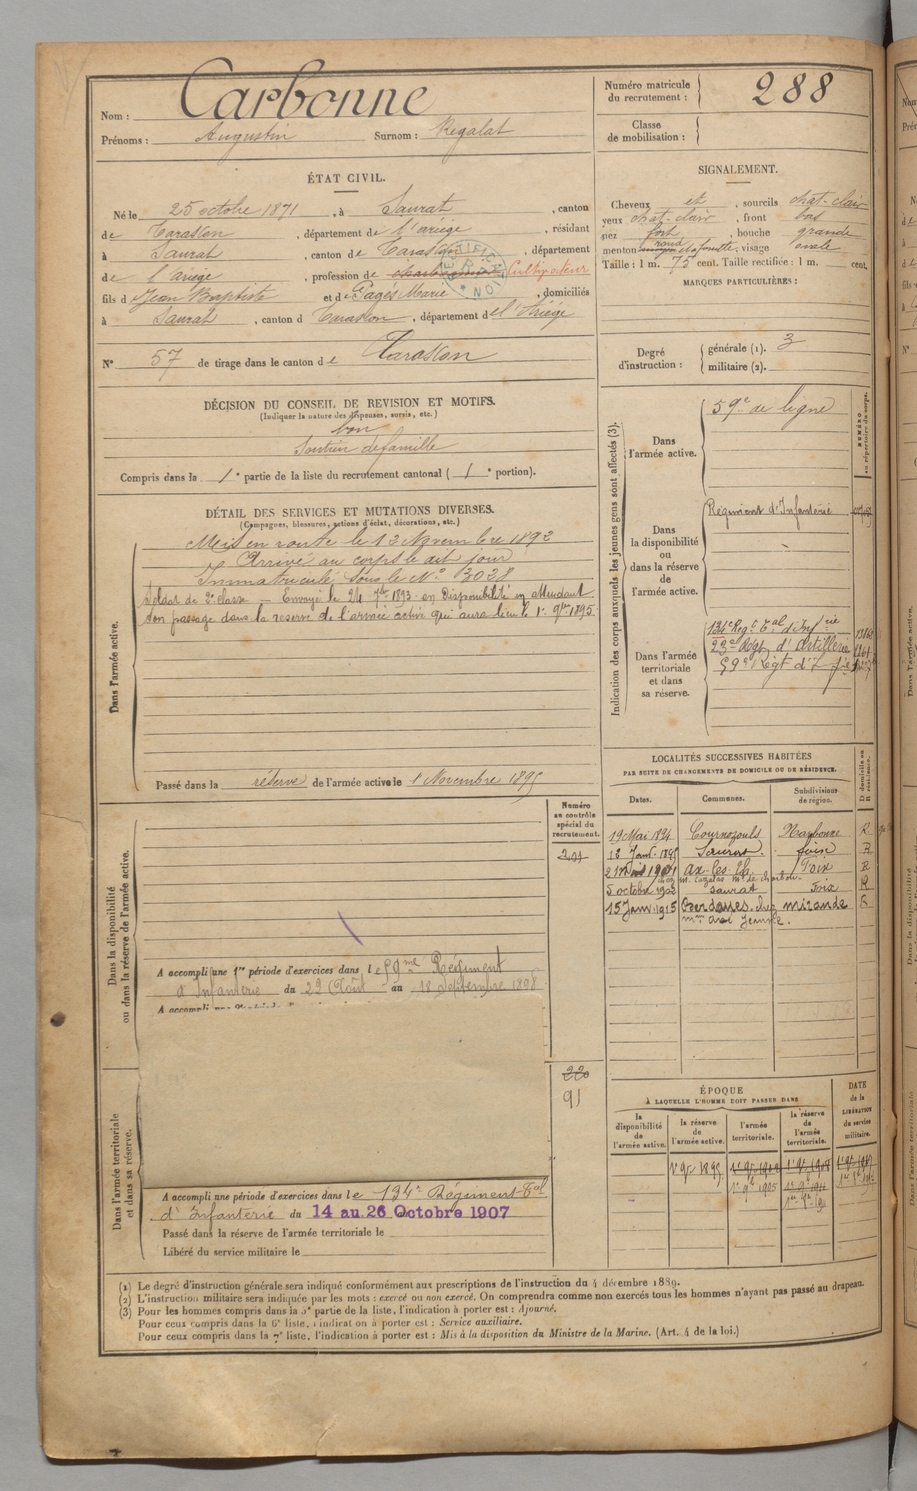 Nom : Carbonne
Prénoms : Augustin Surnom : Régalat
Numéro matricule du recrutement : 288
Classe de mobilisation :
ÉTAT CIVIL.
Né le 25 octobre 1871, à Saurat, canton
de Tarascon, département de l'ariège, résidant
à Saurat, canton de Tarascon, département
de l'ariège, profession de Cultivateur
fils de Jean Baptiste et de Pagès Marie, domiciliés
à Saurat, canton d Tarascon, département de l'Ariège
N° 57 de tirage dans le canton de Tarascon
SIGNALEMENT.
Cheveux et , sourcils chat-clair
yeux chat-clair, front bas
nez fort, bouche grande
menton rond , visage ovale
Taille : 1 m. 75 cent. Taille rectifiée : 1 m. cent.
MARQUES PARTICULIÈRES :
Degré d'instruction : générale (1). 3
militaire (2).
DÉCISION DU CONSEIL DE REVISION ET MOTIFS.
(Indiquer la nature des dispenses, sursis, etc.)
bon
Soutien de famille
Compris dans la 1e partie de la liste du recrutement cantonal ( 1e portion).
DÉTAIL DES SERVICES ET MUTATIONS DIVERSES.
(Campagnes, blessures, actions d'éclat, décorations, etc.)
Dans l'armée active.
Mis en route le 12 Novembre 1892
Arrivé au corps le dit jour
Immatriculé sous le N° 3028
Soldat de 2e classe — Envoyé le 24 7bre 1893 en Disponibilité en attendant
son passage dans la réserve de l'armée active qui aura lieu le 1er 9bre 1895
Passé dans la réserve de l'armée active le 1 Novembre 1895
Indication des corps auxquels les jeunes gens sont affectés (3).
NUMÉRO au répertoire du corps.
Dans l'armée active.
59e de ligne
Dans la disponibilité ou dans la réserve de l'armée active.
Régiment d'Infanterie
Dans l'armée territoriale et dans sa réserve.
134e Regt Tal d'Infrie
23e Régt d'Artillerie
59e Régt d'Infie
LOCALITÉS SUCCESSIVES HABITÉES
PAR SUITE DE CHANGEMENTS DE DOMICILE OU DE RÉSIDENCE.
Dates. Communes. Subdivisions de région. D domicile ou R résidence.
19 Mai 1894 Cournozouls Narbonne R
12 Janv. 1895 Saurat. foix R
1901 ax-les-th. Foix R
5 octobre 1902 Saurat Foix R
15 Janv. 1915 chez mirande R
Numéro au contrôle spécial du recrutement.
201
Dans la disponibilité ou dans la réserve de l'armée active.
A accompli une 1re période d'exercices dans le 59me Régiment
d'Infanterie du 22 Août au 18 Septembre 1898
220
91
Dans l'armée territoriale et dans sa réserve.
A accompli une période d'exercices dans le 134e Régiment Tal
d'Infanterie du 14 au 26 Octobre 1907
Passé dans la réserve de l'armée territoriale le
Libéré du service militaire le
ÉPOQUE
À LAQUELLE L'HOMME DOIT PASSER DANS
DATE de la LIBÉRATION du service militaire.
la disponibilité de l'armée active.
la réserve de l'armée active.
l'armée territoriale.
la réserve de l'armée territoriale.
1er 9bre 1895
1er 9bre 1905
(1) Le degré d'instruction générale sera indiqué conformément aux prescriptions de l'instruction du 4 décembre 1889.
(2) L'instruction militaire sera indiquée par les mots : exercé ou non exercé. On comprendra comme non exercés tous les hommes n'ayant pas passé au drapeau.
(3) Pour les hommes compris dans la 5e partie de la liste, l'indication à porter est : Ajourné.
Pour ceux compris dans la 6e liste, l'indication à porter est : Service auxiliaire.
Pour ceux compris dans la 7e liste, l'indication à porter est : Mis à la disposition du Ministre de la Marine. (Art. 4 de la loi.)